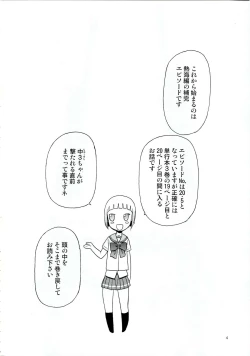 これから始まるのは
熱海編の補完
エピソードです
エピソードNo.は20.6と
なっていますが正確には
単行本3巻の19ページ目と
20ページ目の間に入る
お話です
中3ちゃんが
撃たれる直前
までって事ですネ
頭の中を
そこまで巻き戻して
お読み下さい
4